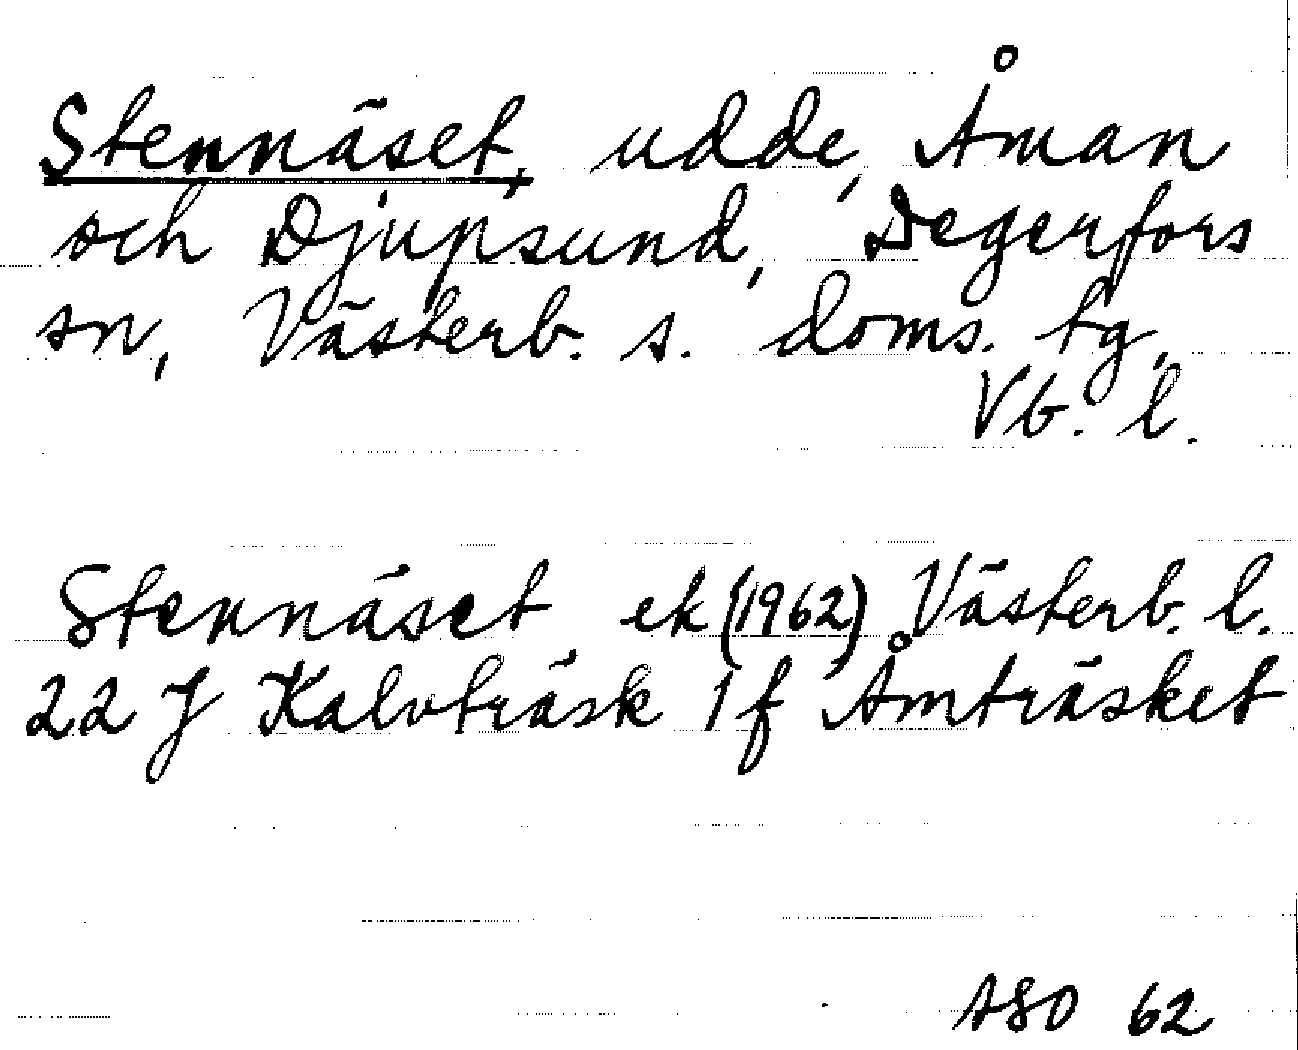 Stennäset, udde, Åman
och Djupsund, Degerfors
sn, Västerb. s. doms. tg,
Vb. l.
Stennäset, ek (1962), Västerb. l.
22 J Kalvträsk 1 f Åmträsket
ASO 62